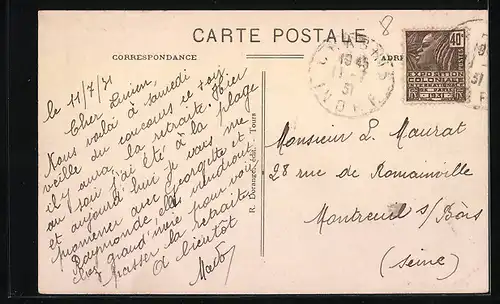 CARTE POSTALE
CORRESPONDANCE
8
40c
POSTES
EXPOSITION
COLONIALE
INTERNATIONALE
PARIS
1931
1945
11-7
31
le 11/7/31
Cher Lucien,
Nous voilà à samedi
veille du concours ce soir
il y aura la retraite. Hier
au soir j'ai été à la plage
et aujourd'hui je vais me
promener avec Georgette et
Raymonde elles viendront
chez grand'mère pour voir
passer la retraite
A bientôt
R. Dorange, édit. - Tours
Monsieur L. Maurat
28 rue de Romainville
Montreuil s/Bois
(Seine)